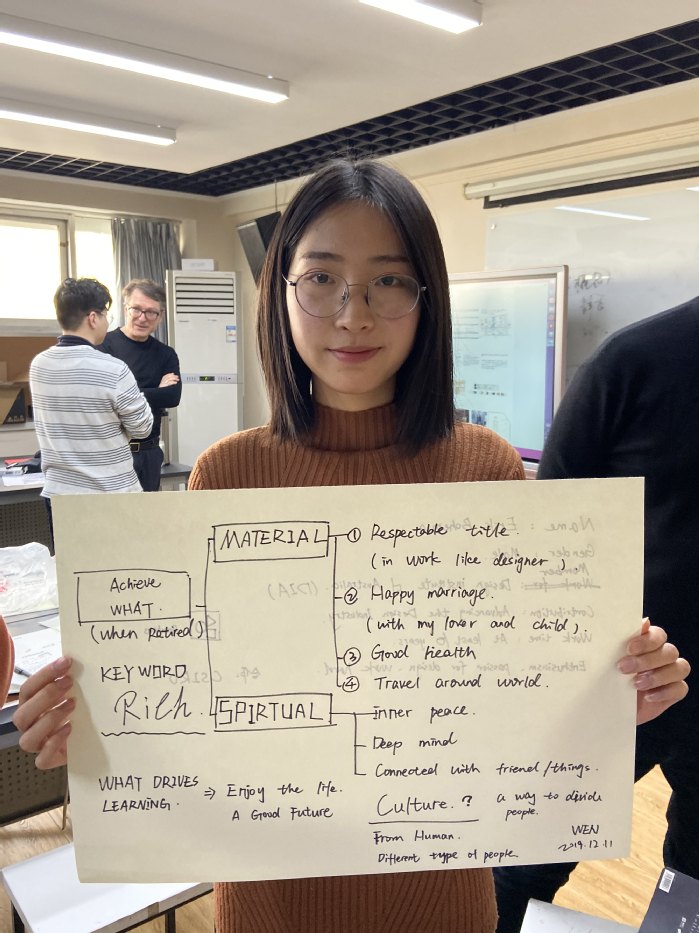 Achieve
WHAT.
(when Ratired)
KEYWORD
Rich.
WHAT DRIVES
LEARNING.
⇒ Enjoy the life.
A Good Future
MATERIAL
① Respectable title.
(in work like designer).
② Happy marriage.
(with my lover and child).
③ Good health
④ Travel around world.
SPIRTUAL
Inner peace.
Deep mind
Connected with friend/things.
Culture.?
a way to divide
people.
From Human.
Different type of people
WEN
2019.12.11